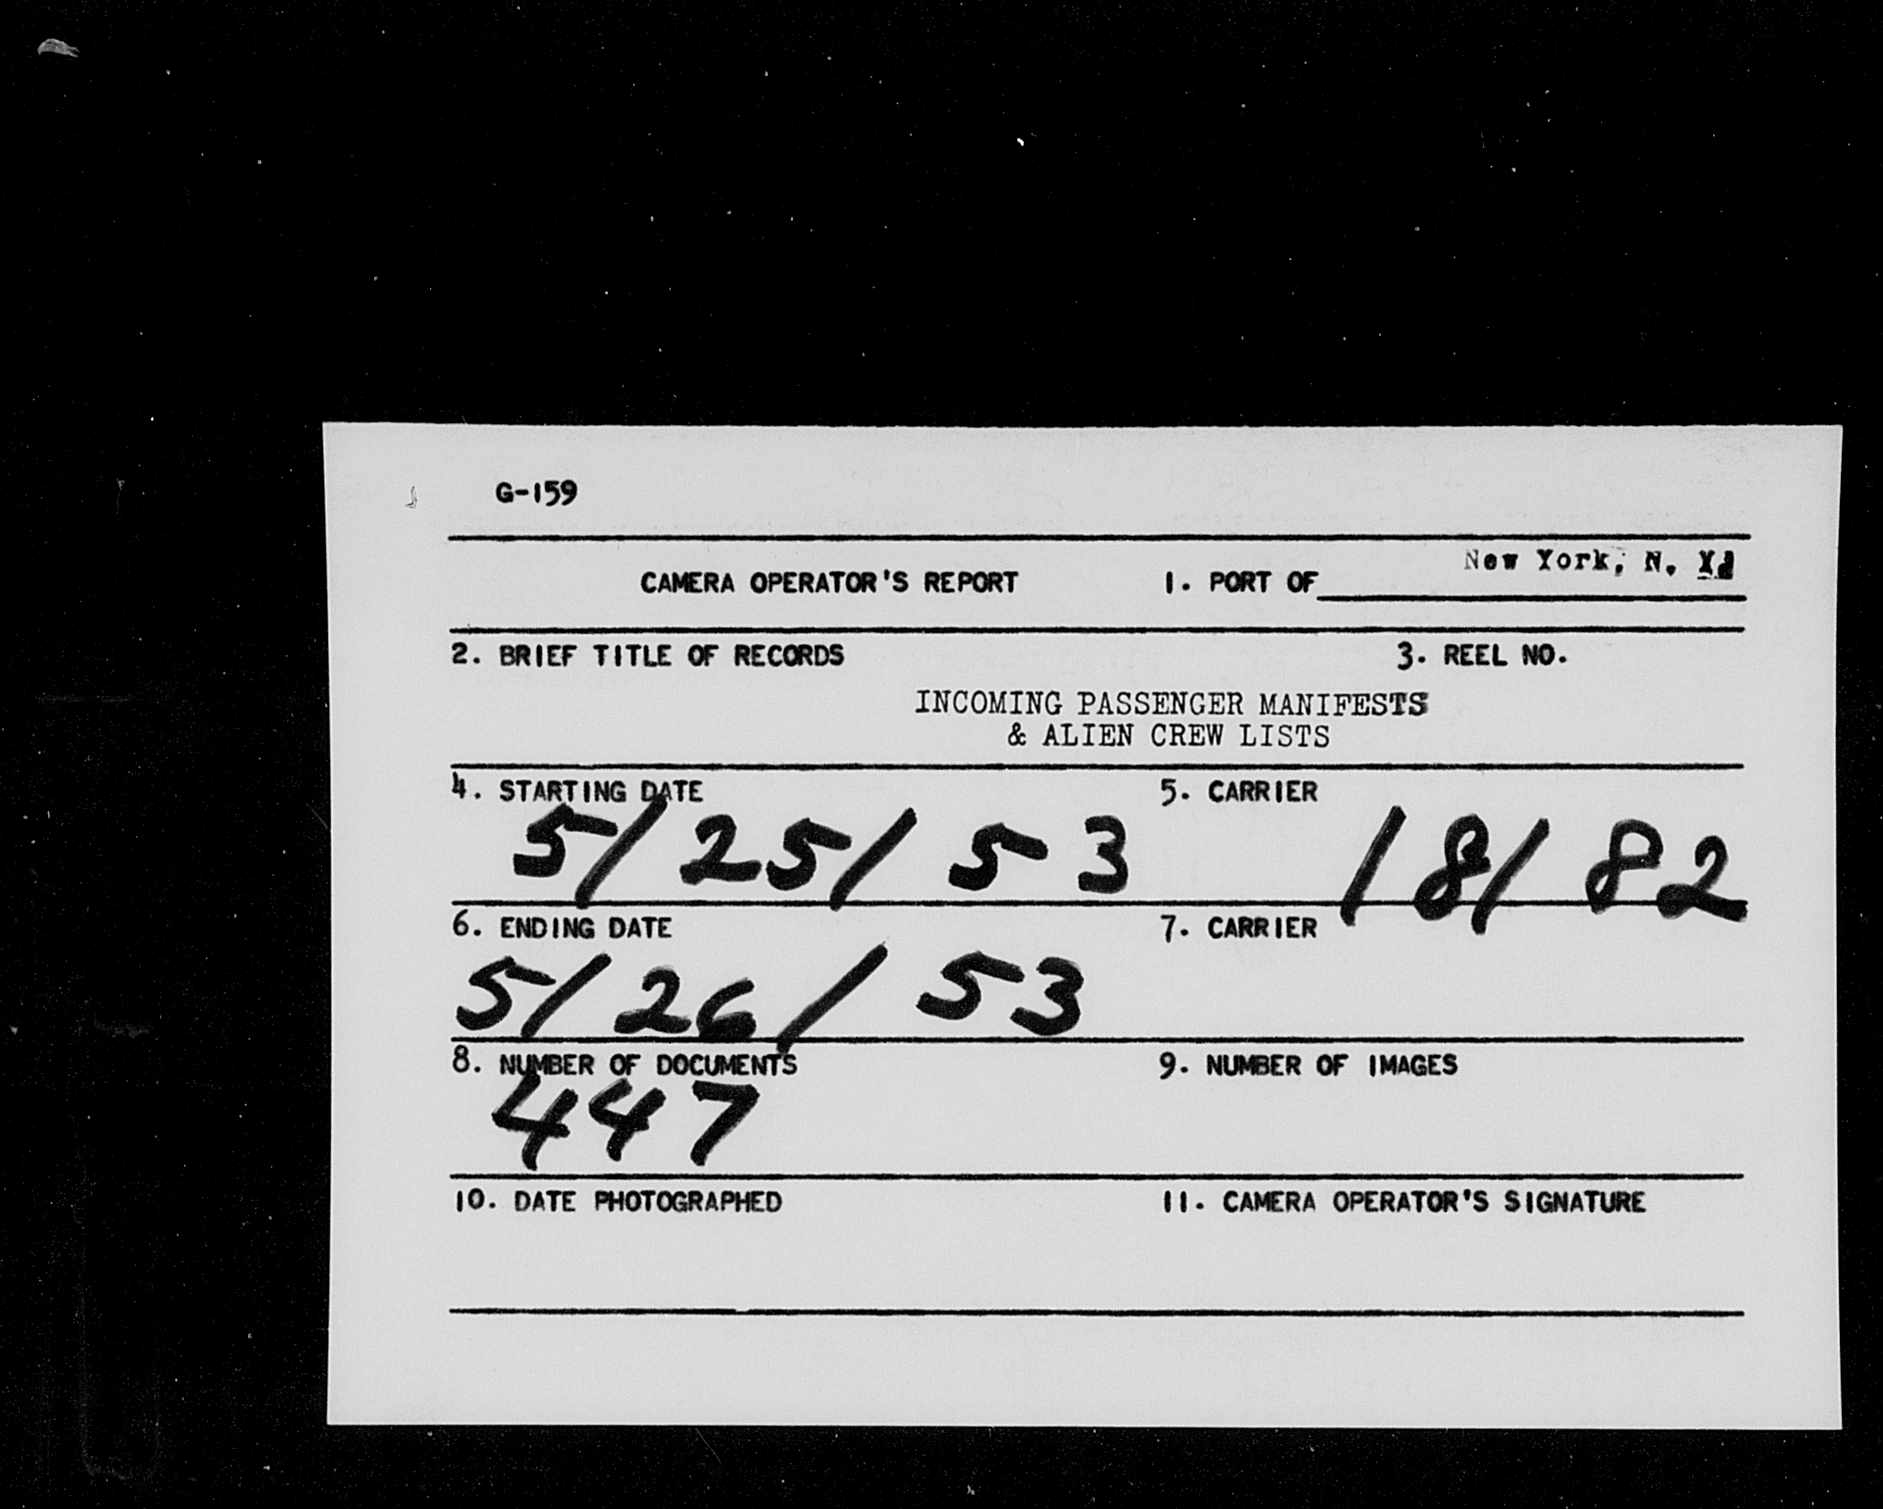 G-159
CAMERA OPERATOR'S REPORT 1. PORT OF New York, N. Y.
2. BRIEF TITLE OF RECORDS 3. REEL NO.
INCOMING PASSENGER MANIFESTS
& ALIEN CREW LISTS
4. STARTING DATE 5. CARRIER
5/25/53 18/82
6. ENDING DATE 7. CARRIER
5/26/53
8. NUMBER OF DOCUMENTS 9. NUMBER OF IMAGES
447
10. DATE PHOTOGRAPHED 11. CAMERA OPERATOR'S SIGNATURE